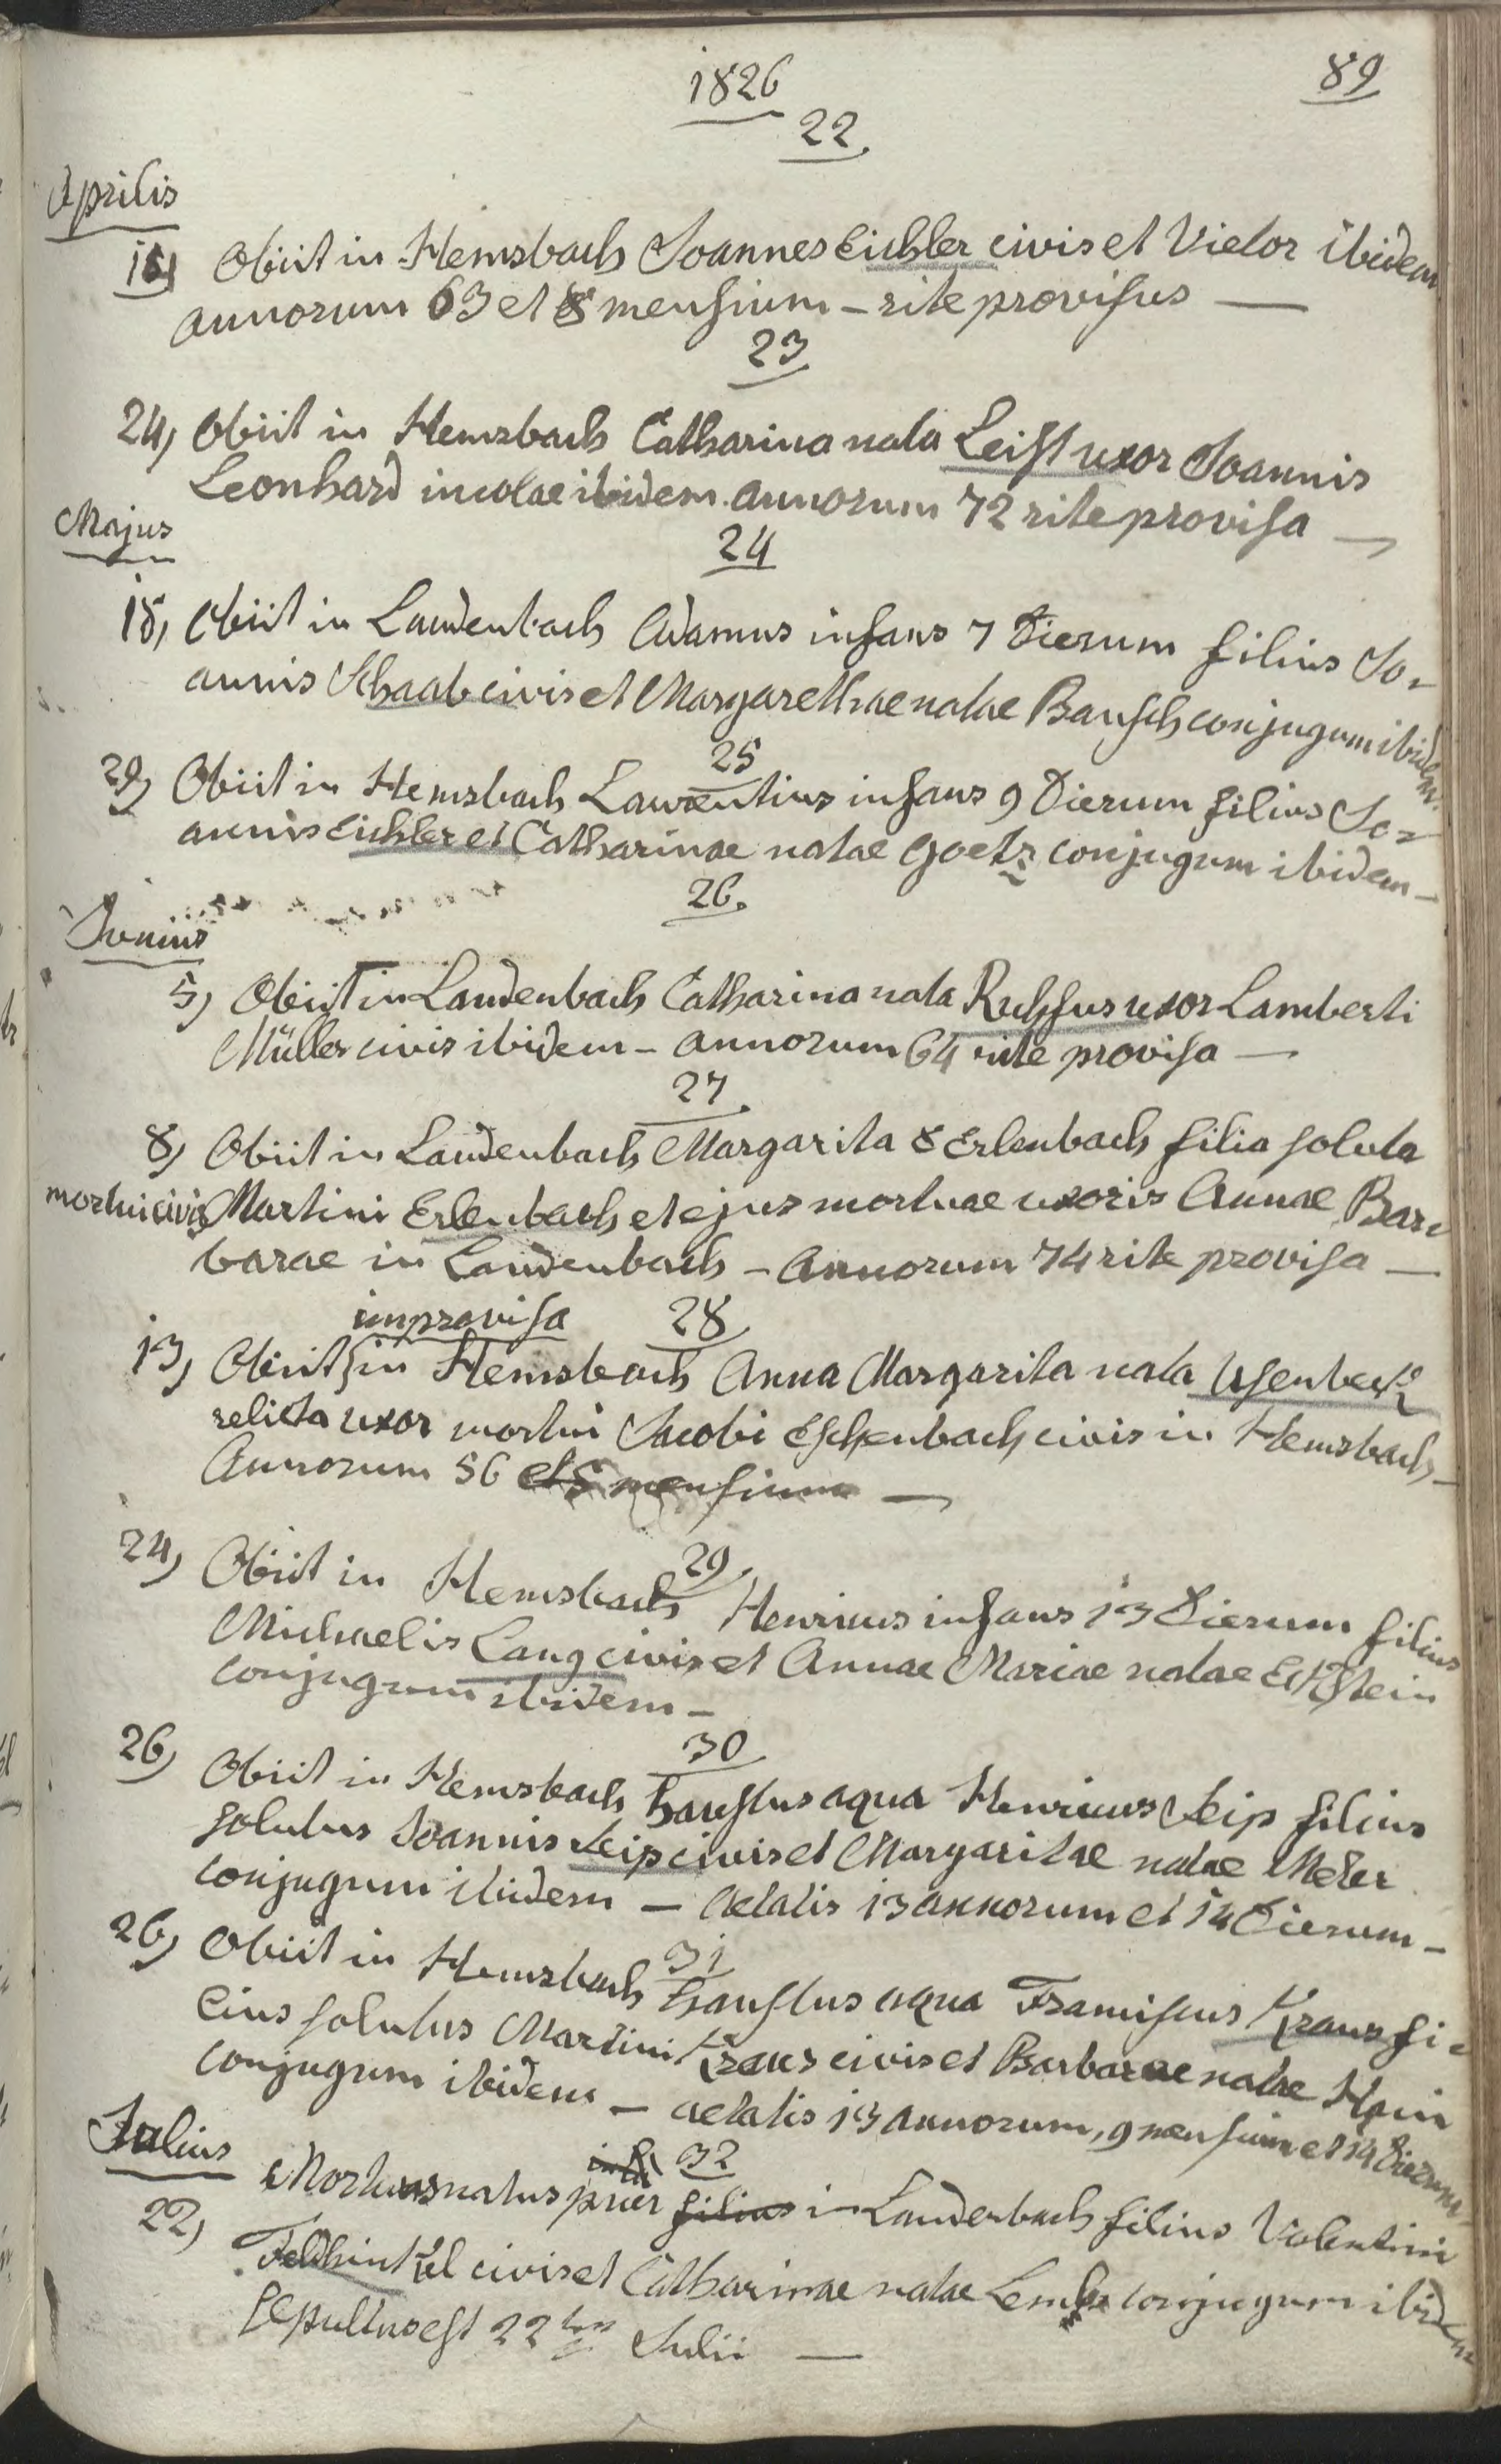 1826
89
22.
Aprilis
16) Obiit in Hemsbach Joannes Eichler civis et Vietor ibidem
annorum 63 et 8 mensium – rite provisus —
23
24, Obiit in Hemsbach Catharina nata Leist uxor Joannis
Leonhard incolae ibidem. annorum 72 rite provisa —
Majus
24
18, Obiit in Laudenbach Adamus infans 7 Dierum filius Jo-
annis Schaab civis et Margarethae natae Bausch conjugum ibidem.
25
29) Obiit in Hemsbach Laurentius infans 9 Dierum filius Jo-
annis Eichler et Catharinae natae Goetz conjugum ibidem –
26.
Junius
5) Obiit in Laudenbach Catharina nata Ruhfus uxor Lamberti
Müller civis ibidem – annorum 64 rite provisa —
27.
8) Obiit in Laudenbach Margarita Erlenbach filia soluta
mortui civis Martini Erlenbach et ejus mortuae uxoris Annae Bar-
barae in Laudenbach – Annorum 74 rite provisa —
improvisa 28
13, Obiit in Hemsbach Anna Margarita nata
relicta uxor mortui Jacobi Eschenbach civis in Hemsbach –
Annorum 56 et 5 mensium —
29.
24) Obiit in Hemsbach Henricus infans 13 Dierum filius
Michaelis Lang civis et Annae Mariae natae Eckstein
conjugum ibidem –
30
26) Obiit in Hemsbach haustus aqua Henricus Seip filius
solutus Joannis Seip civis et Margaritae natae Meter
conjugum ibidem – Aetatis 13 annorum et 14 Dierum –
31
26) Obiit in Hemsbach haustus aqua Franciscus Kraus fi-
lius solutus Martini Kraus civis et Barbarae natae Hein
conjugum ibidem – aetatis 13 annorum, 9 mensium et 14 Dierum
Julius
32
Mortuus natus puer filius in Laudenbach filius Valentini
22) Feldhinkel civis et Catharinae natae conjugum ibidem
sepultus est 22ten Julii —